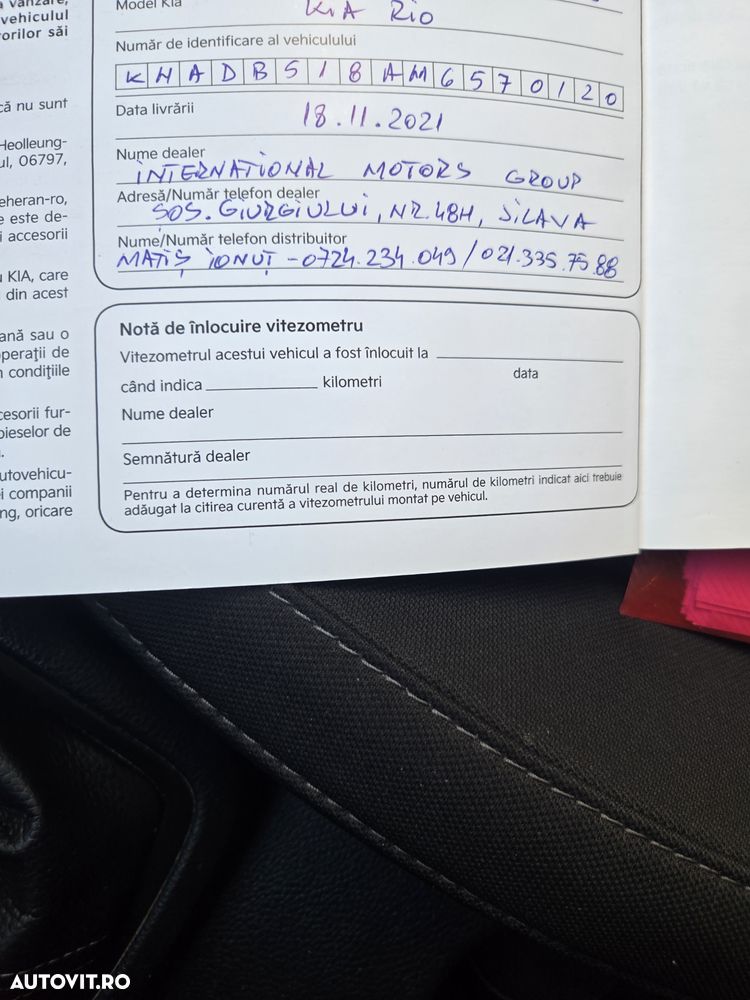 a vânzare,
vehiculul
orilor săi
că nu sunt
Heolleung-
ul, 06797,
eheran-ro,
e este de-
i accesorii
u KIA, care
din acest
ană sau o
operaţii de
n condiţiile
cesorii fur-
pieselor de
utovehicu-
i companii
ng, oricare
Model Kia KIA RIO
Număr de identificare al vehiculului
KNADB518AM6570120
Data livrării 18.11.2021
Nume dealer
INTERNATIONAL MOTORS GROUP
Adresă/Număr telefon dealer
ȘOS. GIURGIULUI, NR. 48H, JILAVA
Nume/Număr telefon distribuitor
MATIȘ IONUȚ - 0724.234.049 / 021.335.75.88
Notă de înlocuire vitezometru
Vitezometrul acestui vehicul a fost înlocuit la
data
când indica kilometri
Nume dealer
Semnătură dealer
Pentru a determina numărul real de kilometri, numărul de kilometri indicat aici trebuie
adăugat la citirea curentă a vitezometrului montat pe vehicul.
AUTOVIT.RO